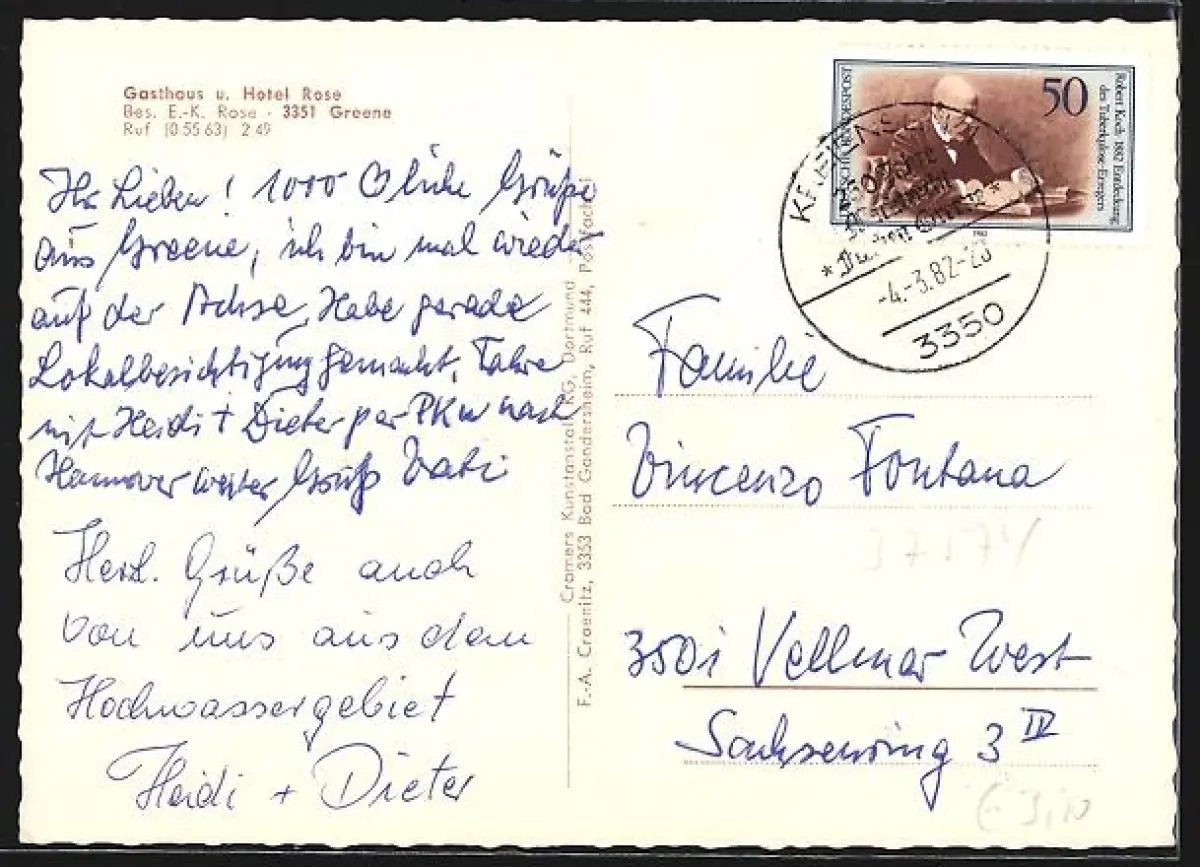 Gasthaus u. Hotel Rose
Bes. E.-K. Rose - 3351 Greene
Ruf (0 55 63) 2 49
Ihr Lieben! 1000 Grüße
aus Greene, ich bin mal wieder
auf der Achse, Habe gerade
Lokalbesichtigung gemacht, Fahre
mit Heidi + Dieter per PKW nach
Hannover weiter Gruß Vati
Herzl. Grüße auch
von uns aus dem
Hochwassergebiet
Heidi + Dieter
Cramers Kunstanstalt KG, Dortmund
F.-A. Craenitz, 3353 Bad Gandersheim, Ruf 444, Postfach
DEUTSCHE BUNDESPOST
50
Robert Koch 1882 Entdeckung
des Tuberkulose-Erregers
1982
KREIENSEN
350 Jahre
-4.-3.82-20
3350
Familie
Vincenzo Fontana
3501 Vellmar West
Sachsenring 3 IV
€ 3,10